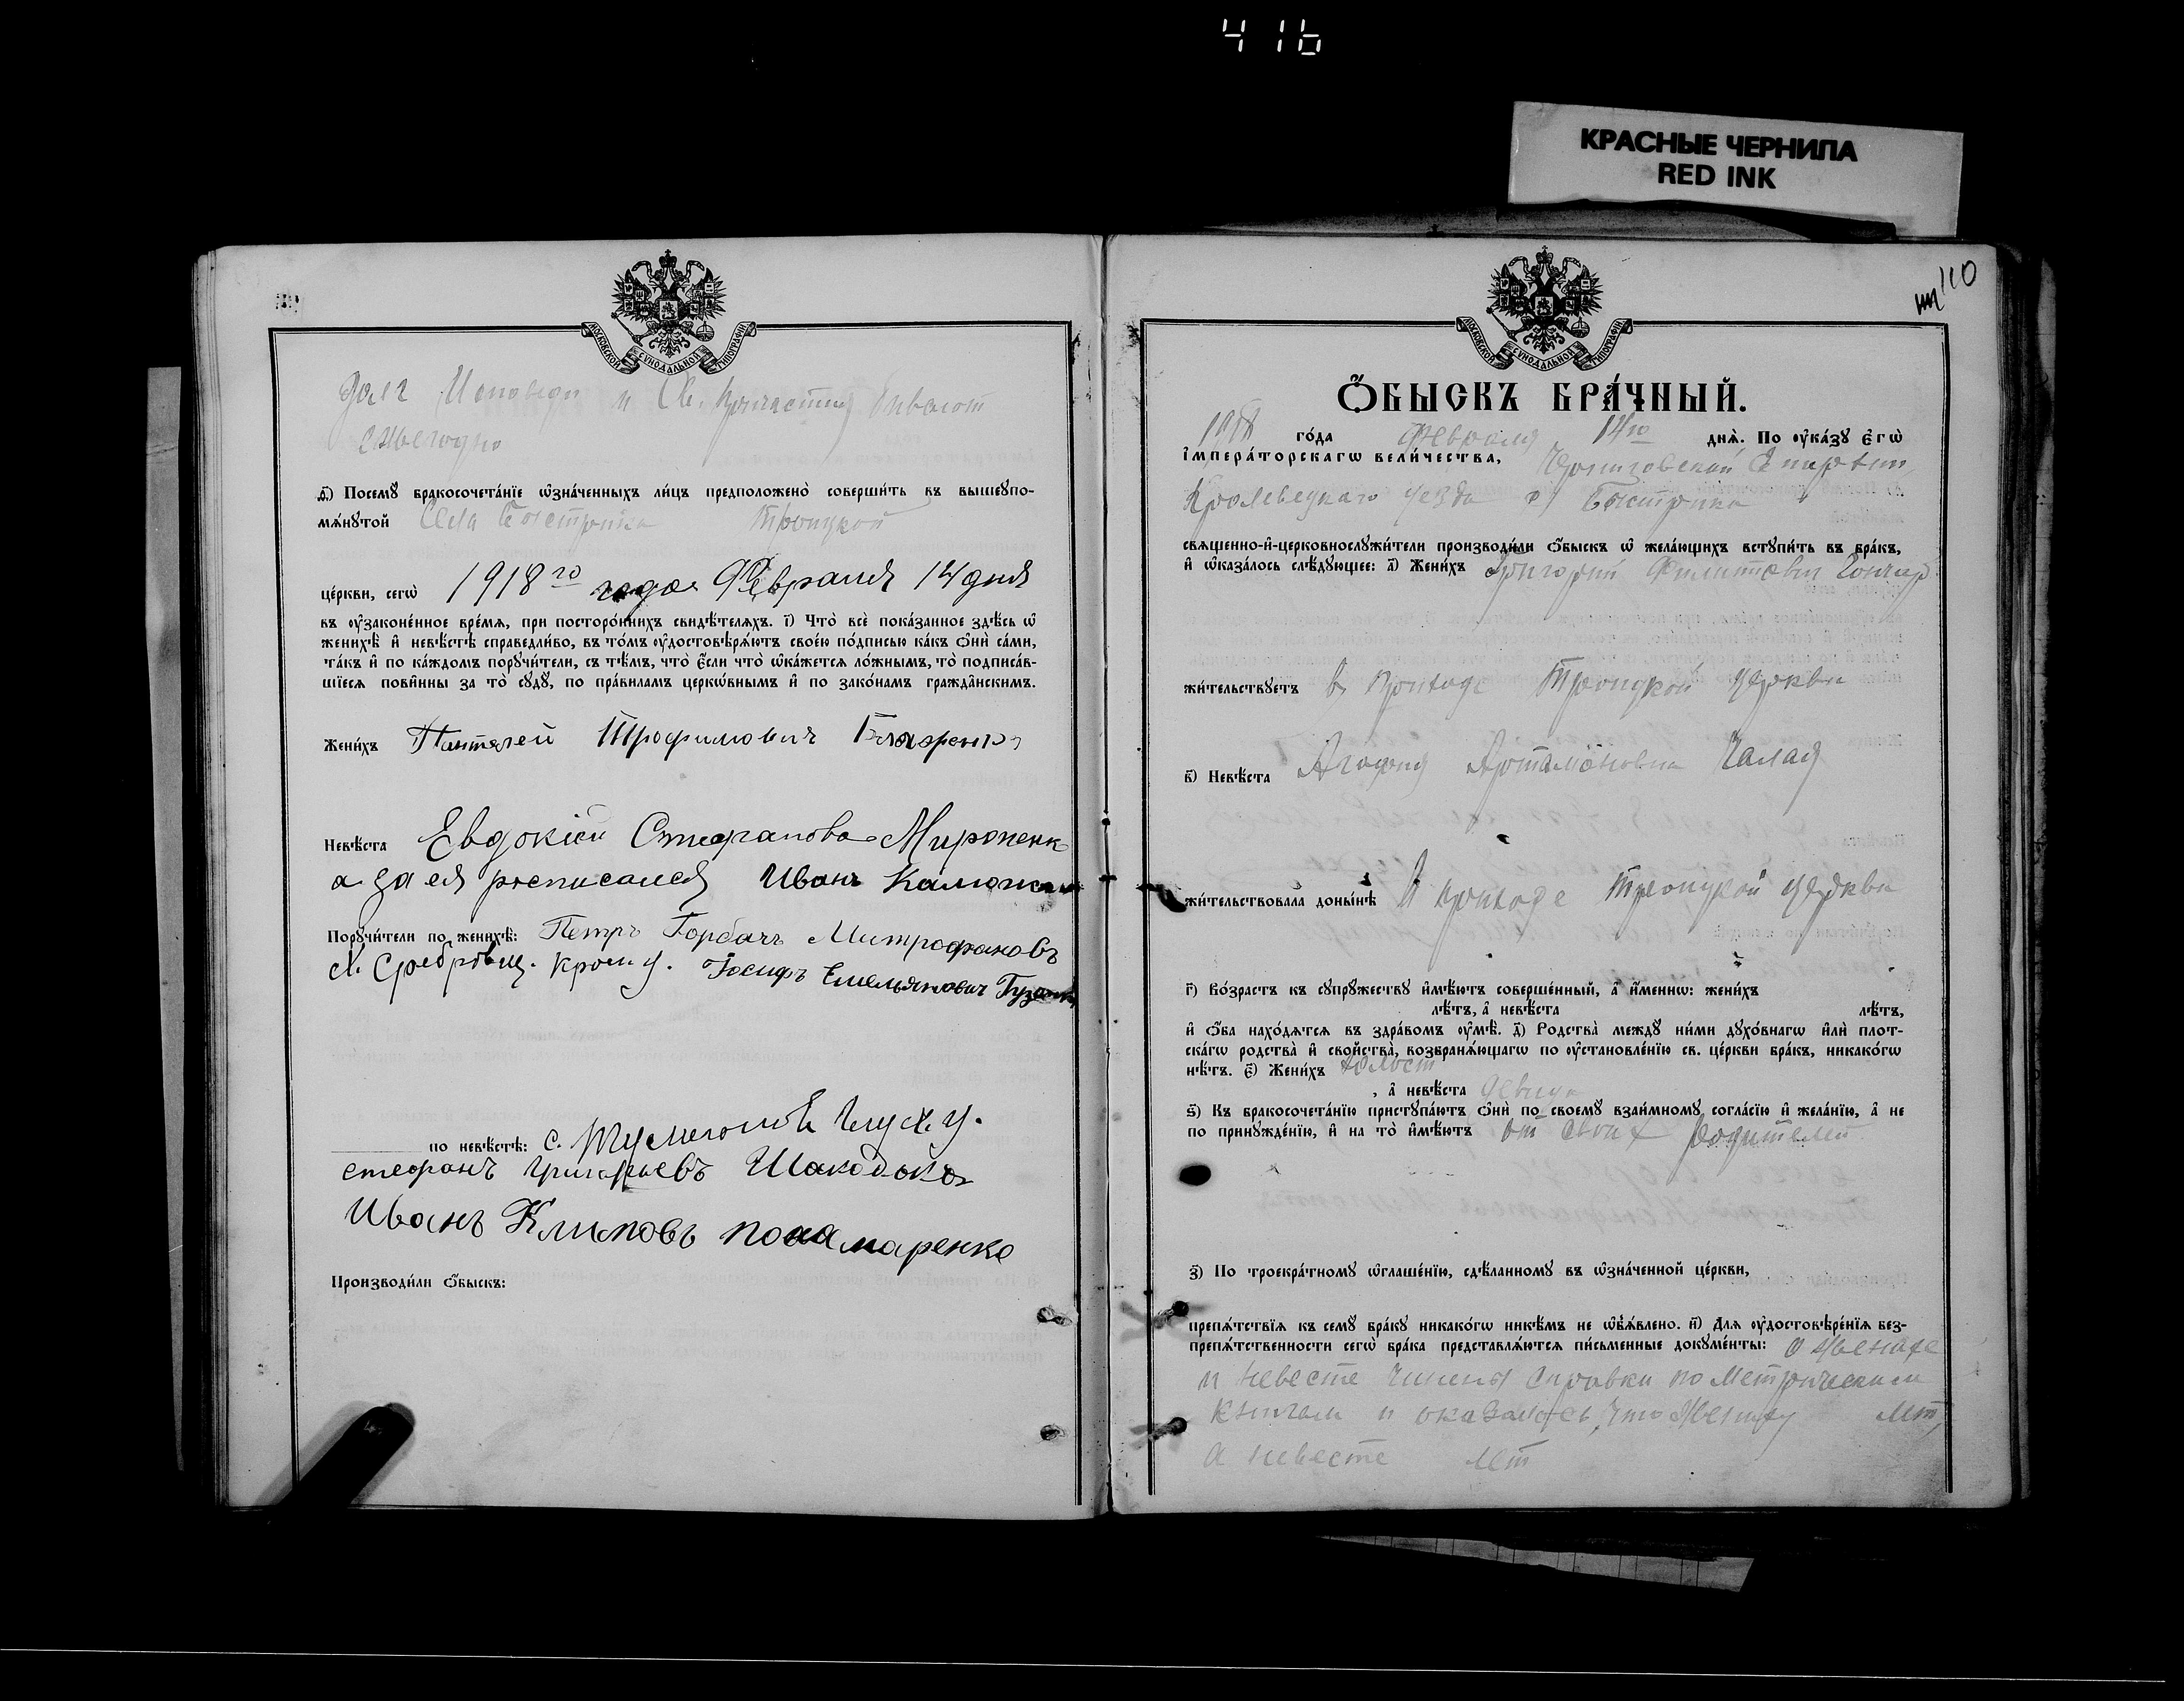 416
КРАСНЫЕ ЧЕРНИЛА
RED INK
МОСКОВСКОЙ СѴНОДАЛЬНОЙ ТИПОГРАФІИ
долг Исповеди и Св. Причастия бивают
ежегодно
д҃і) Посемꙋ̀ бракосочета́нїе ѡ҆зна́ченныхъ ли́цъ предположено̀ соверши́ть въ вышеупо-
мѧ́нꙋтой Села Быстрика Троицкой
це́ркви, сегѡ̀ 1918 го года Февраля 14 дня
въ ᲂу҆законе́нное вре́мѧ, при посторо́ннихъ свидѣ́телѧхъ. і҃) Что̀ всѐ пока́занное здѣ́сь ѡ҆
женихѣ̀ и҆ невѣ́стѣ справедли́во, въ то́мъ ᲂу҆достовѣрѧ́ютъ свое́ю по́дписью ка́къ ѻ҆нѝ са́ми,
та́къ и҆ по ка́ждомъ порꙋчи́тели, съ тѣ́мъ, что̀ є҆́сли что̀ ѡ҆ка́жетсѧ ло́жнымъ, то̀ подписа́в-
шїесѧ пови́нны за то̀ сꙋдꙋ̀, по пра́виламъ церкѡ́внымъ и҆ по зако́намъ гражда́нскимъ.
Жени́хъ Пантелей Трофимович
Невѣ́ста Евдокия Стефанова Мироненк
а за ея росписался Иванъ
Порꙋчи́тели по женихѣ̀: Петръ Горбачъ Митрофановъ
Іосифъ Емельянович
по невѣ́стѣ: с.
стефанъ григорьевъ
Иванъ Климовъ понамаренко
Производи́ли ѻ҆́быскъ:
110
МОСКОВСКОЙ СѴНОДАЛЬНОЙ ТИПОГРАФІИ
Ѻ҆́БЫСКЪ БРА́ЧНЫЙ.
1918 го́да Февраля 14 го днѧ̀. По ᲂу҆ка́зꙋ є҆гѡ̀
і҆мпера́торскагѡ вели́чества, Черниговской Епархии
Кролевецкаго уезда с. Быстрика
свѧще́нно-и҆-церковнослꙋжи́тели производи́ли ѻ҆́быскъ ѡ҆ жела́ющихъ встꙋпи́ть въ бра́къ,
и҆ ѡ҆каза́лось слѣ́дꙋющее: а҃) Жени́хъ Григорий Филиппович Гончар
жи́тельствꙋетъ в приходе Троицкой церкви
в҃) Невѣ́ста Агафия Артамоновна Чалая
жи́тельствовала доны́нѣ В приходе Троицкой церкви
г҃) Во́зрастъ къ сꙋпрꙋ́жествꙋ и҆мѣ́ютъ соверше́нный, а҆ и҆́меннѡ: жени́хъ
лѣ́тъ, а҆ невѣ́ста лѣ́тъ,
и҆ ѻ҆́ба нахо́дѧтсѧ въ здра́вомъ ᲂу҆мѣ̀. д҃) Родства̀ междꙋ̀ ни́ми дꙋхо́внагѡ и҆лѝ плот-
ска́гѡ родства̀ и҆ сво́йства, возбранѧ́ющагѡ по ᲂу҆становле́нїю св. це́ркви бра́къ, никако́гѡ
нѣ́тъ. є҃) Жени́хъ холост
, а҆ невѣ́ста девица
ѕ҃) Къ бракосочета́нїю пристꙋпа́ютъ ѻ҆нѝ по своемꙋ̀ взаи́мномꙋ согла́сїю и҆ жела́нїю, а҆ не
по принꙋжде́нїю, и҆ на то̀ и҆мѣ́ютъ от своих родителей
з҃) По троекра́тномꙋ ѡ҆глаше́нїю, сдѣ́ланномꙋ въ ѡ҆зна́ченной це́ркви,
препѧ́тствїѧ къ семꙋ̀ бра́кꙋ никако́гѡ никѣ́мъ не ѡ҆б̾ѧ́влено. и҃) Длѧ ᲂу҆достовѣре́нїѧ без-
препѧ́тственности сегѡ̀ бра́ка представлѧ́ютсѧ пи́сьменные докꙋме́нты: О женихе
и невесте чинены справки по Метрическим
книгам и оказалось, что Жениху лет,
а невесте лет